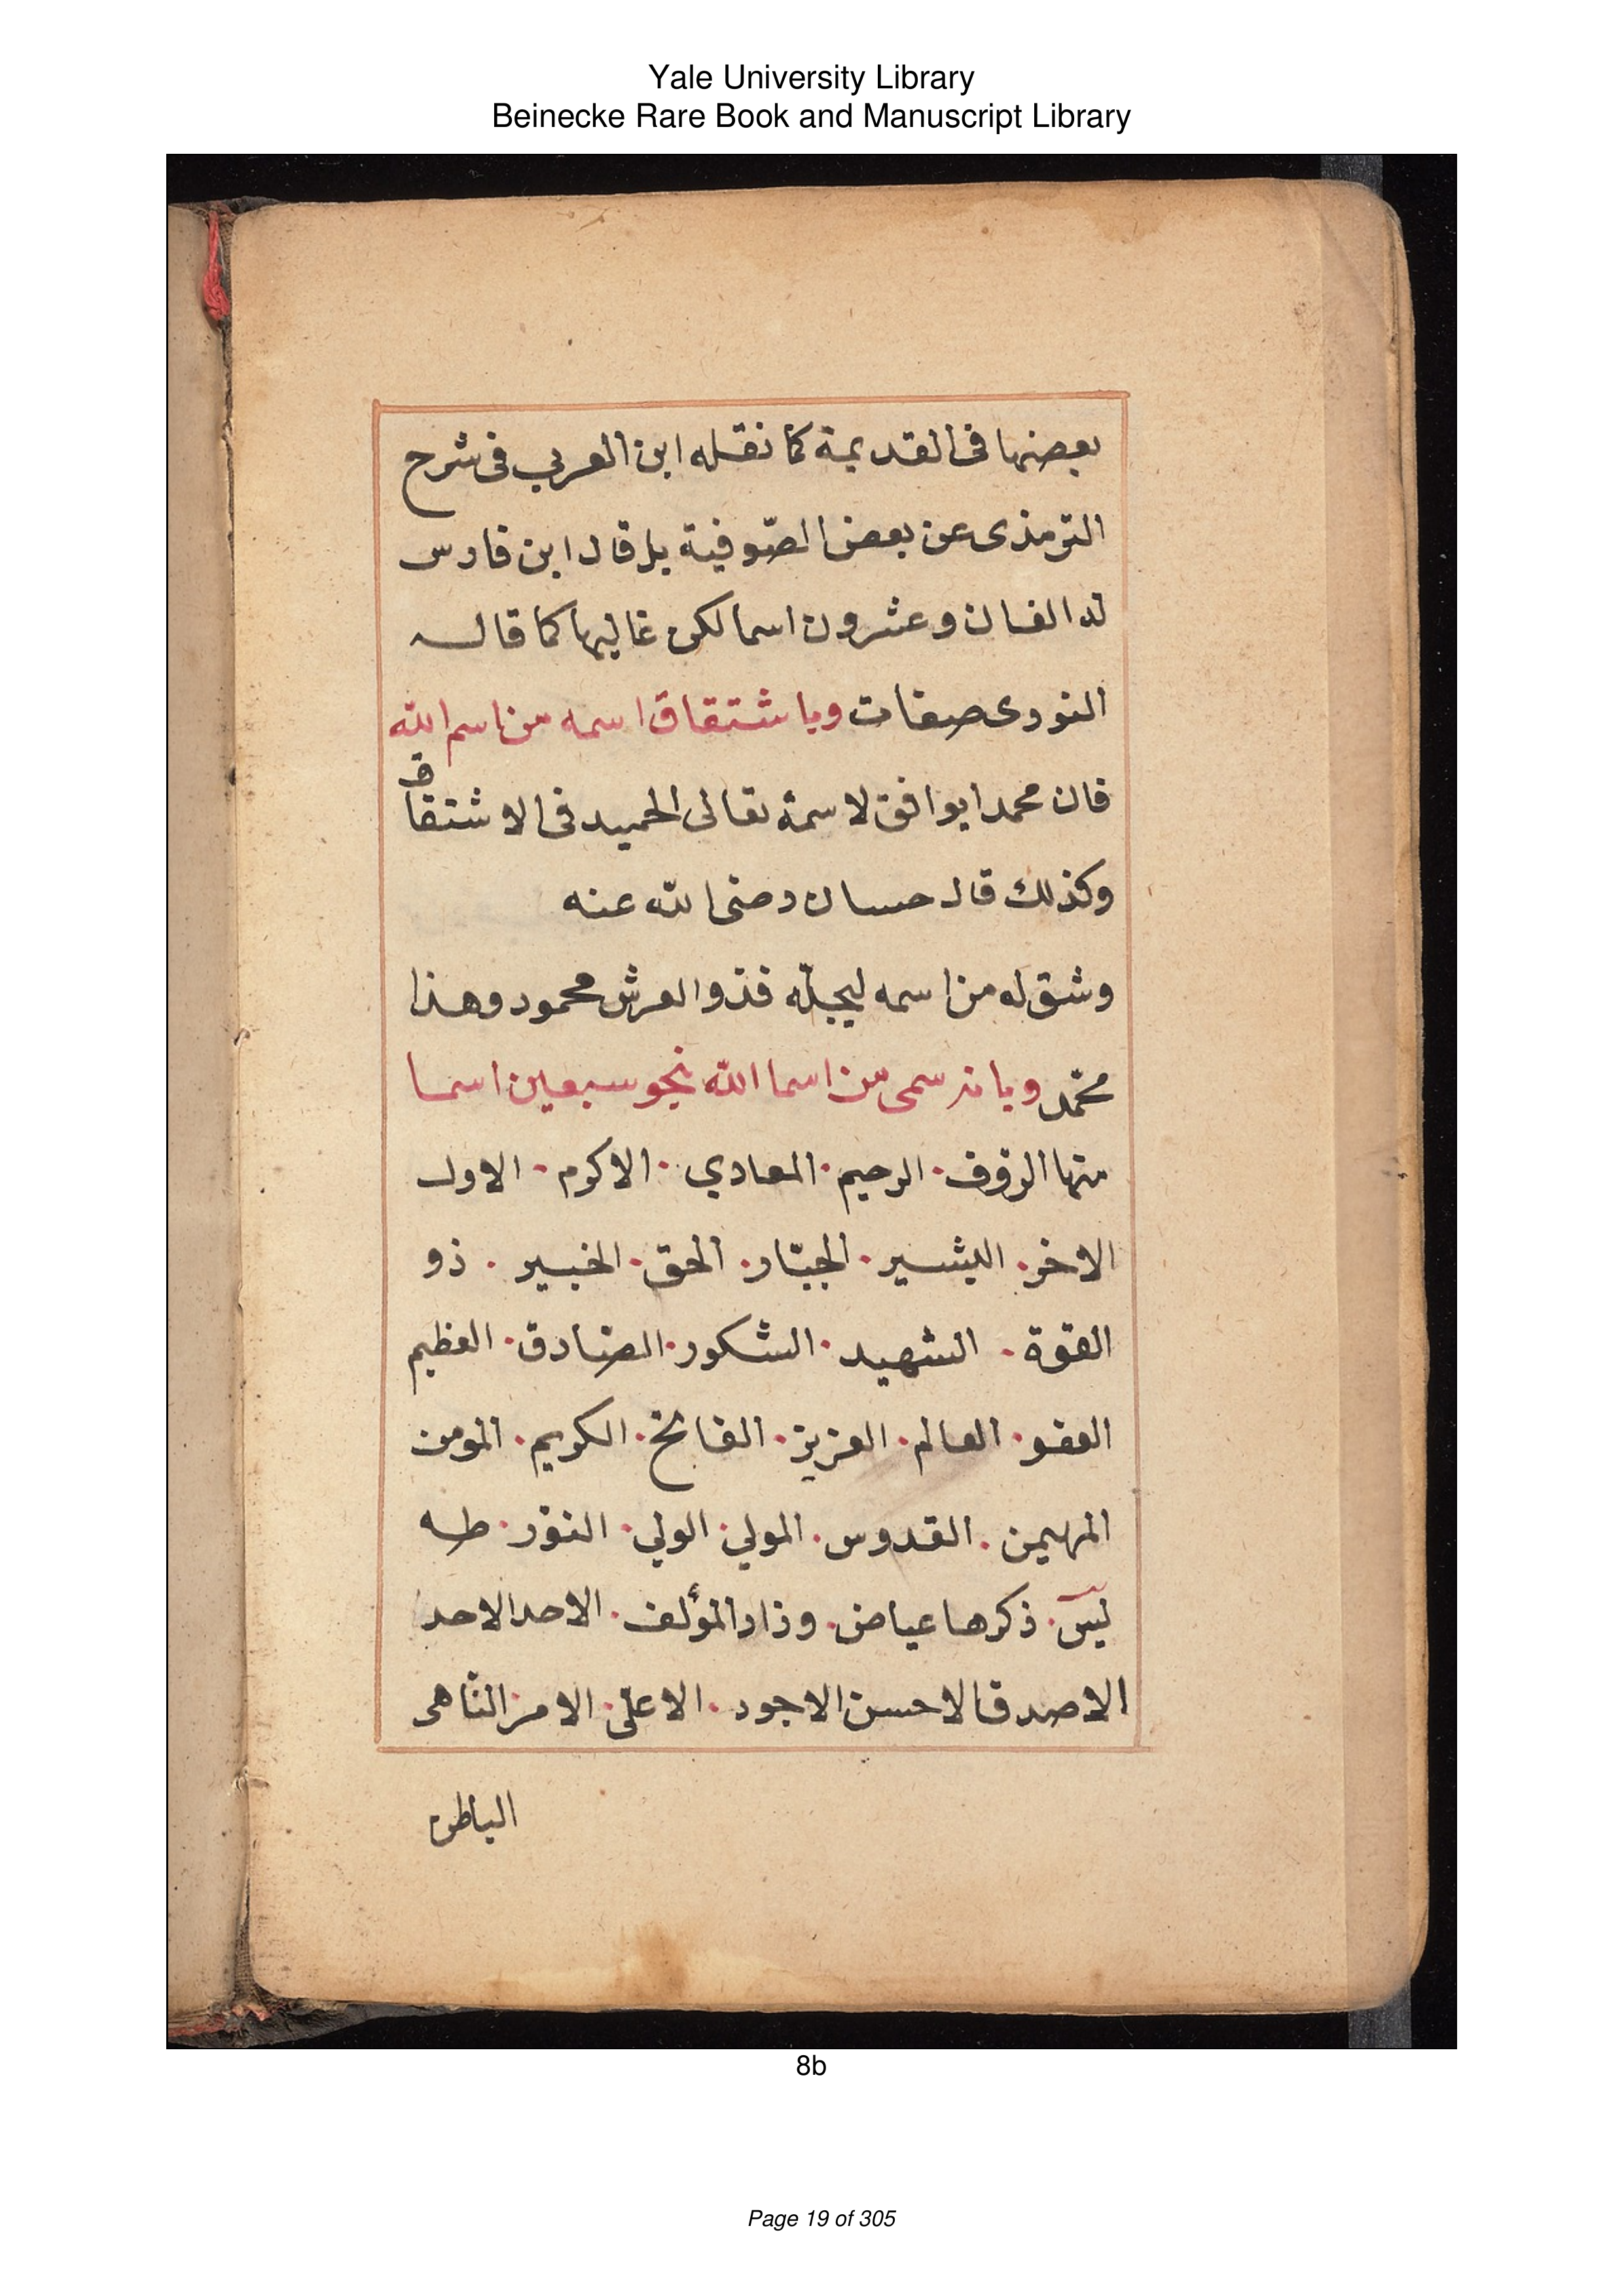 Yale University Library
Beinecke Rare Book and Manuscript Library
بعضها فى القديمة كما نقله ابن العربي فى شرح
الترمذى عن بعض الصّوفية بل قال ابن فارس
له الفان وعشرون اسما لكن غالبها كما قال
النووى صفات وباشتقاق اسمه من اسم الله
فان محمدا يوافق لاسمه تعالى الحميد فى الاشتقاق
وكذلك قال حسان رضى الله عنه
وشق له من اسمه ليجلّه فذو العرش محمود وهذا
محمّد وبانه سمى من اسما الله نحو سبعين اسما
منها الرؤف . الرحيم . الهادي . الاكرم . الاول
الاخر . البشير . الجبّار . الحق . الخبير . ذو
القوة . الشهيد . الشكور . الصّادق . العظيم
العفو . العالم . العزيز . الفاتح . الكريم . المومن
المهيمن . القدوس . المولي . الولي . النور . طه
يس . ذكرها عياض . وزاد المؤلف . الاحد الاحد
الاصدق الاحسن الاجود . الاعلى . الامر النّاهى
الباطن
8b
Page 19 of 305